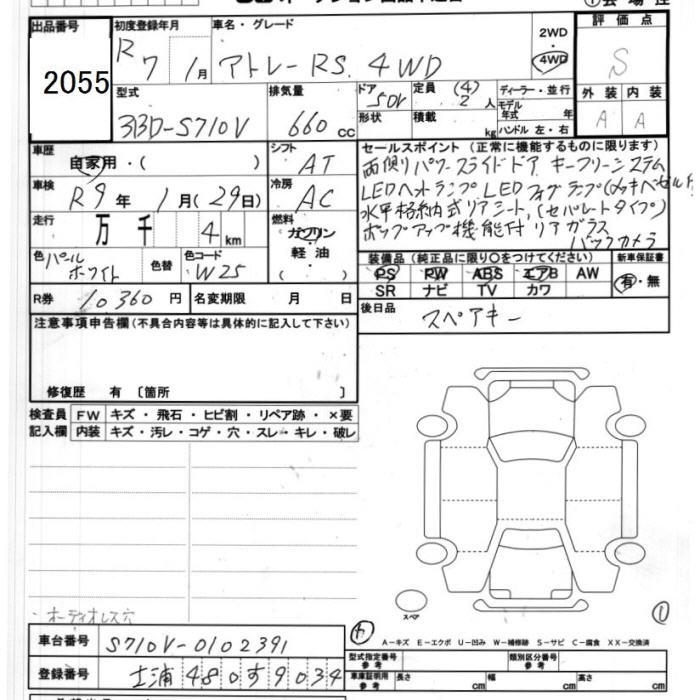 出品番号 初度登録年月 車名・グレード 2WD 評価点
2055 R 7 1月 アトレー RS 4WD ・4WD S
型式 排気量 ドア 定員 (4) ディーラー・並行 外装 内装
3BD-S710V 660 cc 5DV 2人 モデル年式 年 A A
形状 積載 kg ハンドル 左・右
車歴 自家用・( ) シフト AT セールスポイント (正常に機能するものに限ります)
両側リパワースライドドア キーフリーシステム
車検 R9年 1月(29日) 冷房 AC LEDヘッドランプ LEDフォグランプ(メッキベゼル付)
走行 万 千 4 km 燃料 ガソリン 軽油 水平格納式リアシート,(セパレートタイプ)
ポップアップ機能付リアガラス
バックカメラ
色 パールホワイト 色替 色コード W25
装備品 (純正品に限り○をつけてください) 新車保証書
PS PW ABS エアB AW 有・無
SR ナビ TV カワ
R券 10360円 名変期限 月 日 後日品 スペアキー
注意事項申告欄(不具合内容等は具体的に記入して下さい)
修復歴 有 〔箇所 〕
検査員 FW キズ・飛石・ヒビ割・リペア跡・×要
記入欄 内装 キズ・汚レ・コゲ・穴・スレ・キレ・破レ
スペア
・オーディオレス穴 ①
車台番号 S710V-0102391 ④ A-キズ E-エクボ U-凹み W-補修跡 S-サビ C-腐食 XX-交換済
型式指定番号 参考 類別区分番号 参考
登録番号 土浦 480 す 9034 車庫証明用 参考 長さ cm 幅 cm 高さ cm